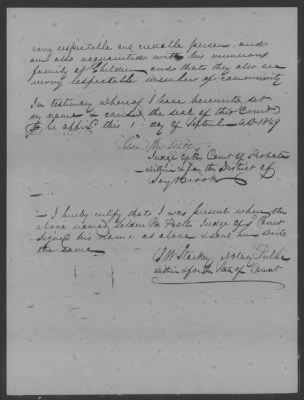 very respectable and credable person, and
am also acquainted with his numerous
family of Children and that they also are
very respectable members of community
In testimony whereof I have hereunto set
my name & caused the seal of this Court
to be affixed this 1st day of September AD 1849
Selden M Pratt
Judge of the Court of Probate
within & for the District of
Saybrook
I hereby certify that I was present when the
above named Selden M Pratt Judge of Court
signed his name as above & saw him write
the same
Notary Public
within & for the State of Connt